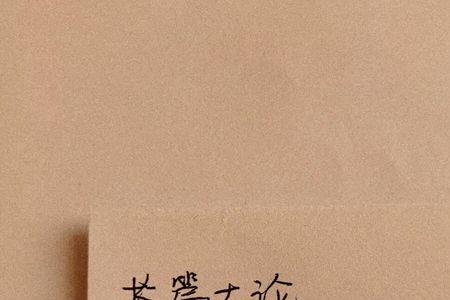 长篇大论